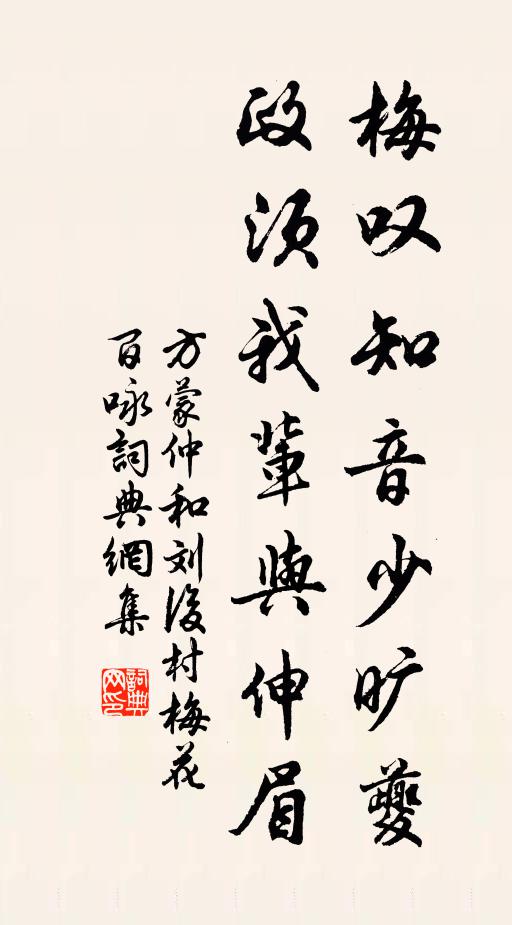 梅叹知音少旷夔
政须我辈与伸眉
方蒙仲和刘后村梅花
百咏词典网集
词典
网印